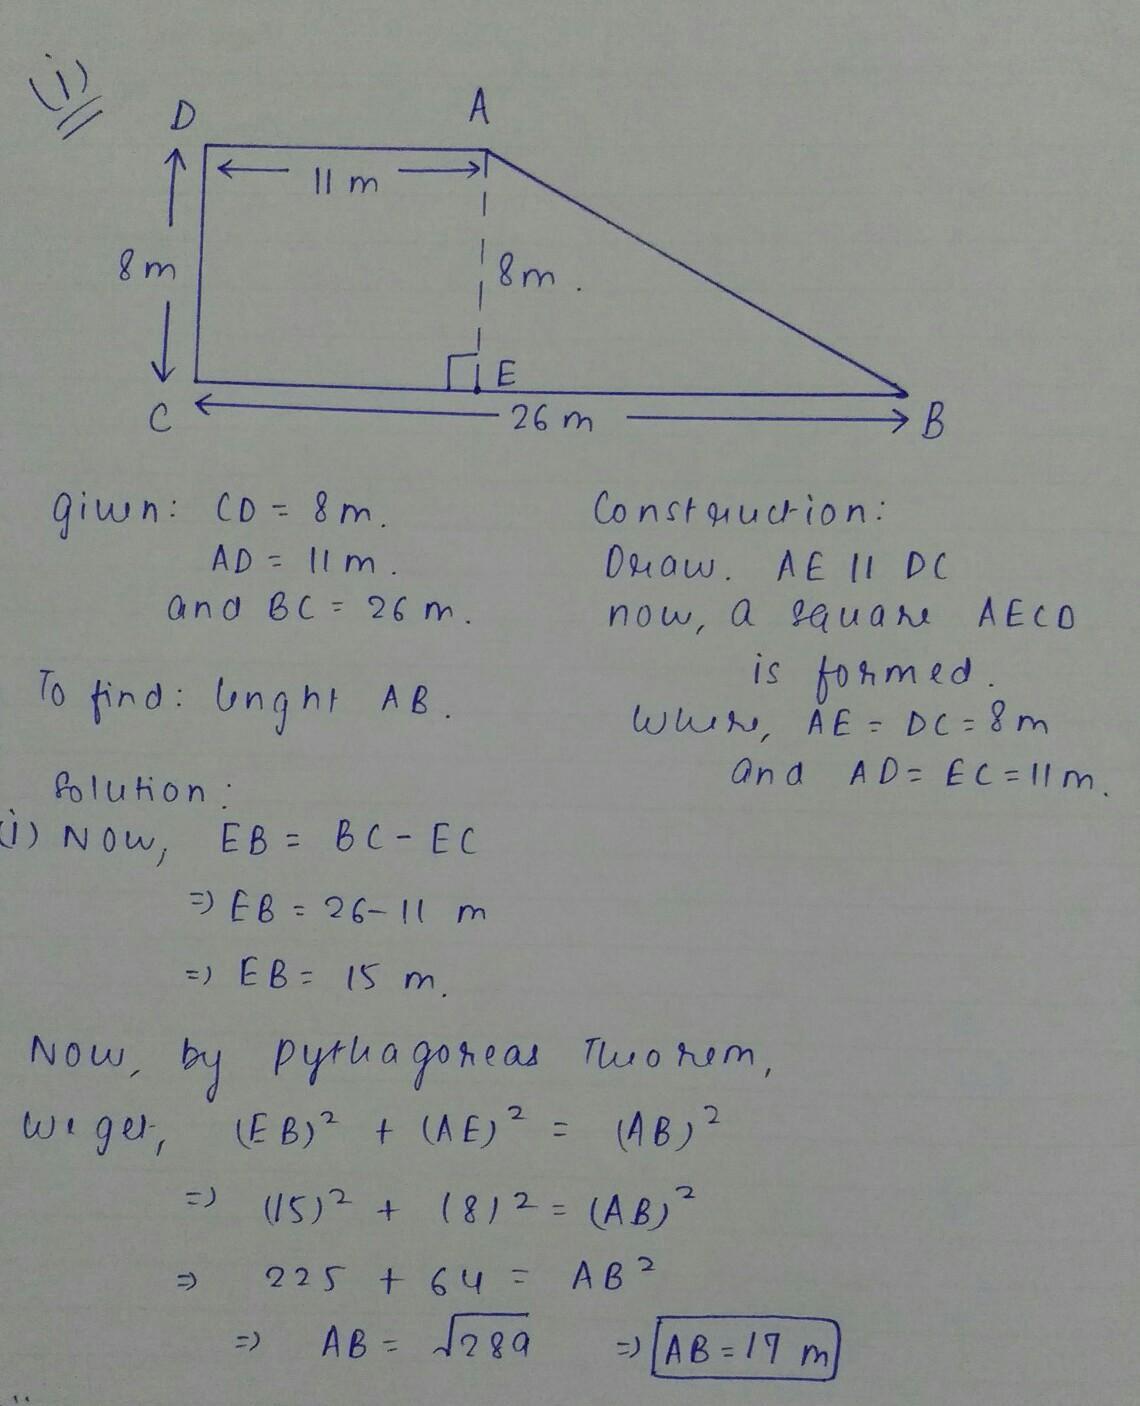 (i)
D A
11 m
8 m
8 m .
E
C 26 m B
given: CD = 8 m.
AD = 11 m .
and BC = 26 m .
To find: lenght AB .
Construction:
Draw. AE || DC
now, a square AECD
is formed.
where, AE = DC = 8 m
and AD = EC = 11 m.
Solution:
(i) Now, EB = BC - EC
=> EB = 26 - 11 m
=> EB = 15 m.
Now, by pythagoreas Theorem,
we get, (EB)² + (AE)² = (AB)²
=> (15)² + (8)² = (AB)²
=> 225 + 64 = AB²
=> AB = √289 => AB = 17 m